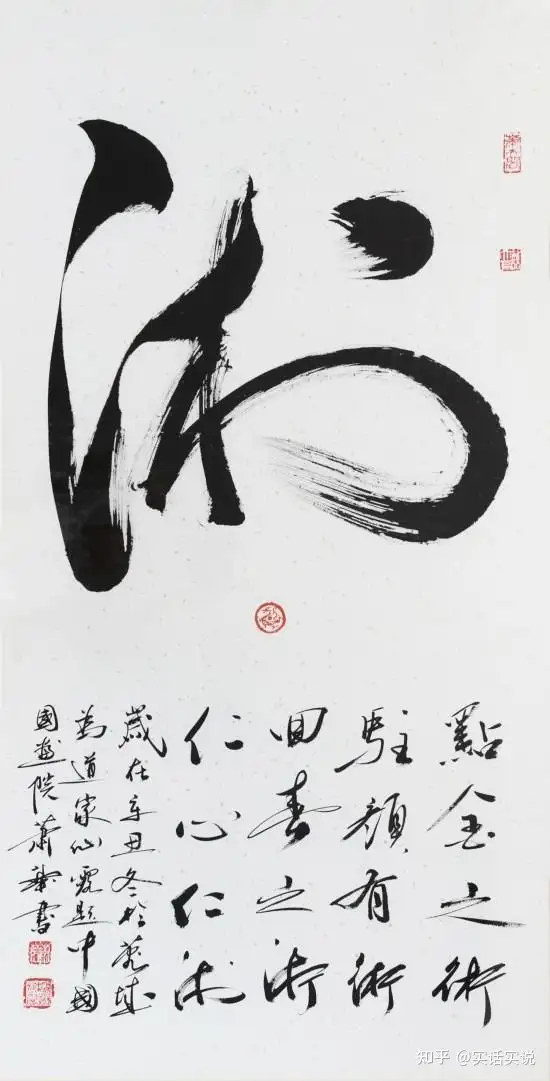 術
點金之術
駐顏有術
回春之術
仁心仁術
歲在辛丑冬於城
為道家仙題中國
國院蕭書
知乎 @实话实说